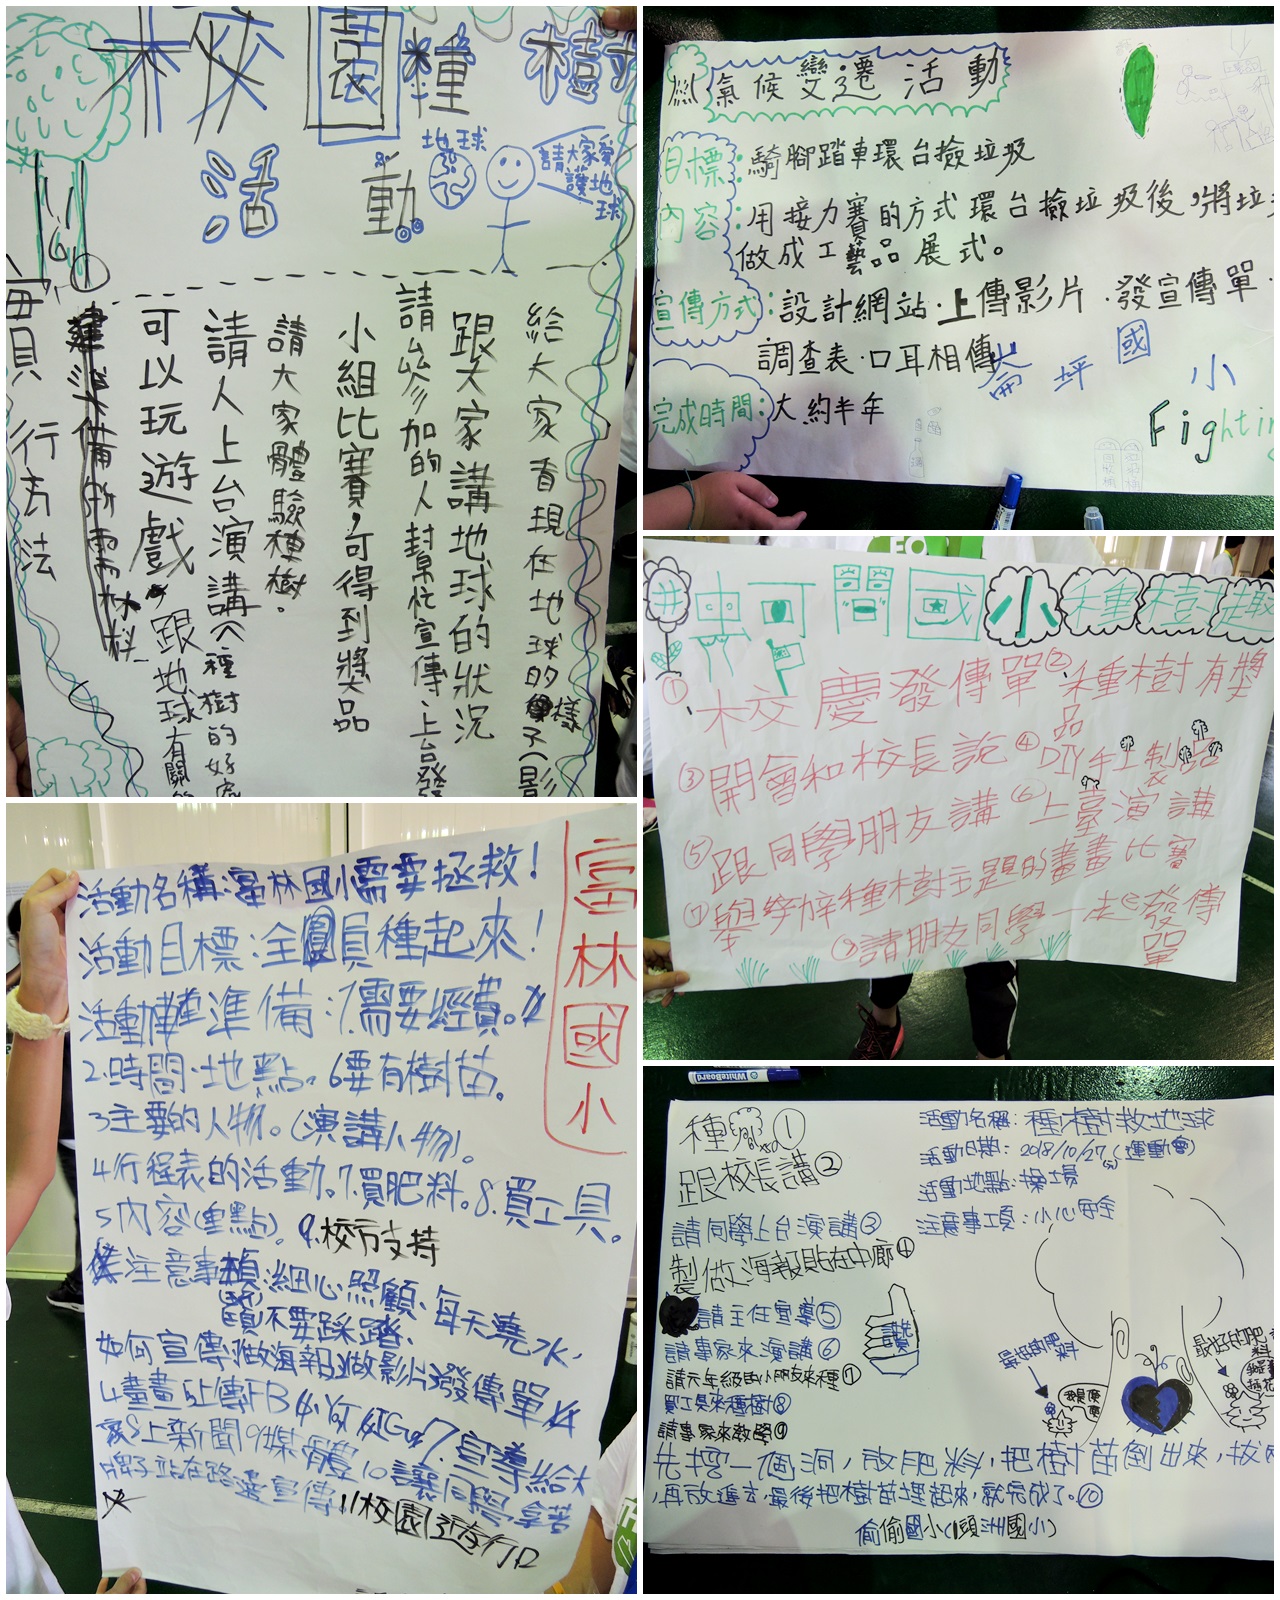 校園種樹
活動
地球
請大家愛
護地
球
給大家看現在地球的樣子(影
跟大家講地球的狀況
請參加的人幫忙宣傳、上台發
小組比賽,可得到獎品
請大家體驗種樹。
請人上台演講(種樹的好處
可以玩遊戲,跟地球有關的
準備所需材料
行方法
氣候變遷活動
目標:騎腳踏車環台撿垃圾
內容:用接力賽的方式環台撿垃圾後,將垃
做成工藝品展式。
宣傳方式:設計網站·上傳影片·發宣傳單·
調查表·口耳相傳
完成時間:大約半年
崙坪國小
Fighti
國小種樹趣
①校慶發傳單②種樹有獎
品
③開會和校長說④DIY手工製品
⑤跟同學朋友講⑥上臺演講
⑦舉辦種樹主題的畫畫比賽
請朋友同學一起發傳
單
富林國小
活動名稱:富林國小需要拯救!
活動目標:全員種起來!
活動準備:1.需要經費。
2.時間·地點。6要有樹苗。
3主要的人物。(演講人物)。
4行程表的活動。7.買肥料。8.買工具。
5內容(重點)。9.校方支持
注意事項:細心照顧、每天澆水、
不要踩踏、
如何宣傳:1做海報2做影片3發傳單
4畫畫5上傳FB 7.宣導給大
家8上新聞9媒體10讓同學拿著
牌子站在路邊宣傳11校園遊行
WhiteBoard
種樹①
跟校長講②
請同學上台演講③
製做海報貼在中廊④
請主任宣導⑤
請專家來演講⑥
請六年級的小朋友來種⑦
買工具來種樹⑧
請專家來教學⑨
活動名稱:種樹救地球
活動日期:2018/10/27(六)(運動會)
活動地點:操場
注意事項:小心安全
讚
最好的肥
料
最好的肥
料
先挖一個洞,放肥料,把樹苗倒出來,拔
,再放進去,最後把樹苗埋起來,就完成了。⑩
偷偷國小(頭洲國小)